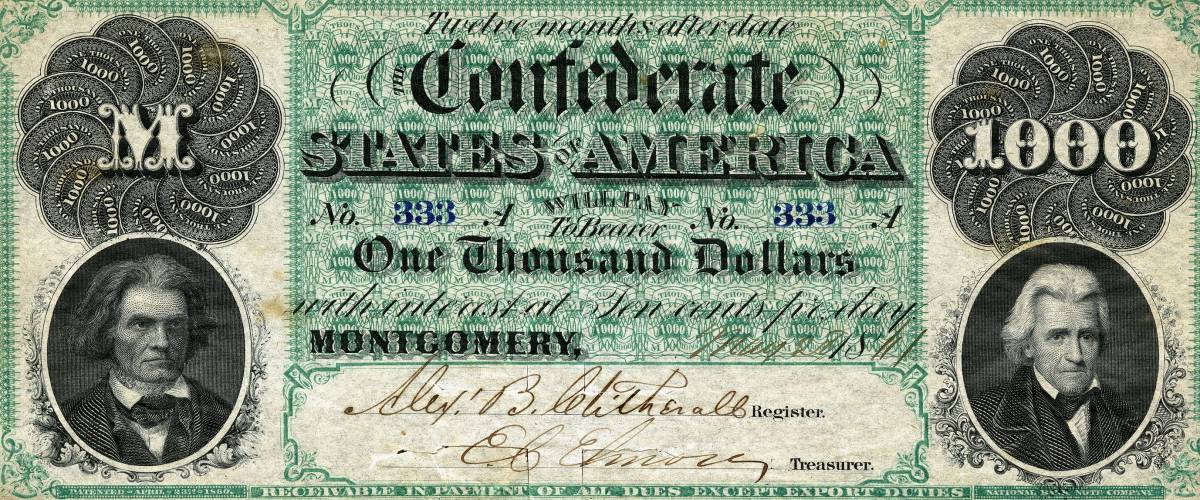 Twelve months after date
THE Confederate
STATES OF AMERICA
M
1000
No. 333 A WILL PAY No. 333 A
To Bearer
One Thousand Dollars
with interest at Ten cents pr. day
MONTGOMERY, May 28 1861
Alexr. B. Clitherall Register.
E C Elmore Treasurer.
PATENTED - APRIL - 23RD - 1860.
RECEIVABLE IN PAYMENT OF ALL DUES EXCEPT EXPORT DUTIES
NATIONAL BANK NOTE COMPANY